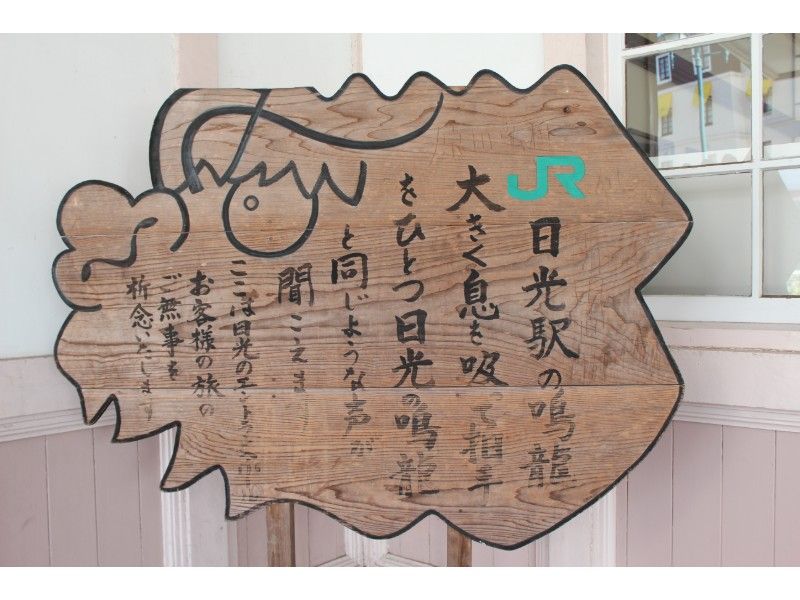 JR
日光駅の鳴龍
大きく息を吸って拍手
をひとつ日光の鳴龍
と同じような声が
聞こえま
ここは日光のエントランスホール
お客様の旅の
ご無事を
祈念いたします